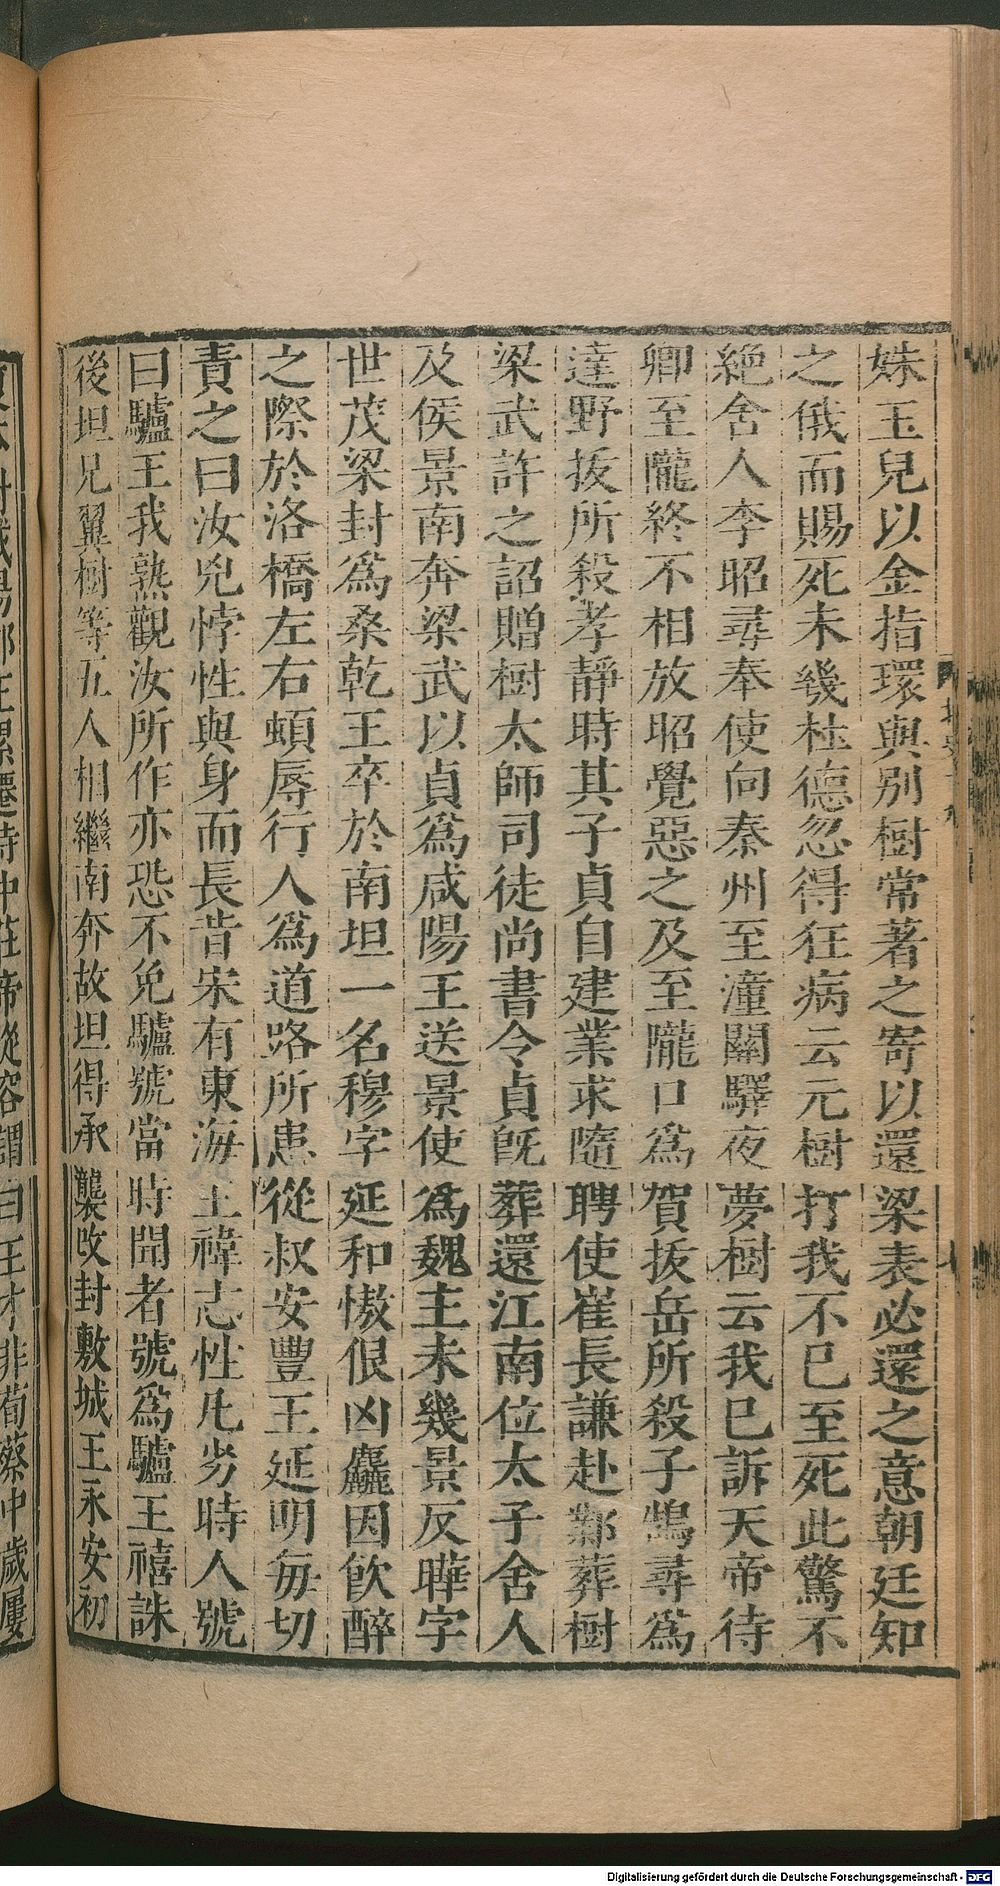 姝玉兒以金指環與別樹常著之寄以還梁表必還之意朝廷知
之俄而賜死未幾杜德忽得狂病云元樹打我不已至死此驚不
絶舍人李昭尋奉使向秦州至潼關驛夜夢樹云我已訴天帝待
卿至隴終不相放昭覺惡之及至隴口為賀拔岳所殺子鵠尋為
達野拔所殺孝靜時其子貞自建業求隨聘使崔長謙赴鄴葬樹
梁武許之詔贈樹太師司徒尚書令貞旣葬還江南位太子舍人
及侯景南奔梁武以貞為咸陽王送景使為魏主未幾景反曄字
世茂梁封為桑乾王卒於南坦一名穆字延和慠佷凶麤因飲醉
之際於洛橋左右頓辱行人為道路所患從叔安豐王延明每切
責之曰汝兇悖性與身而長昔宋有東海王禕志性凡劣時人號
曰驢王我熟觀汝所作亦恐不免驢號當時聞者號為驢王禧誅
後坦兄翼樹等五人相繼南奔故坦得承襲改封敷城王永安初
封咸陽郡王累遷侍中莊帝從容謂曰王才非荀蔡中歲屢
Digitalisierung gefördert durch die Deutsche Forschungsgemeinschaft - DFG